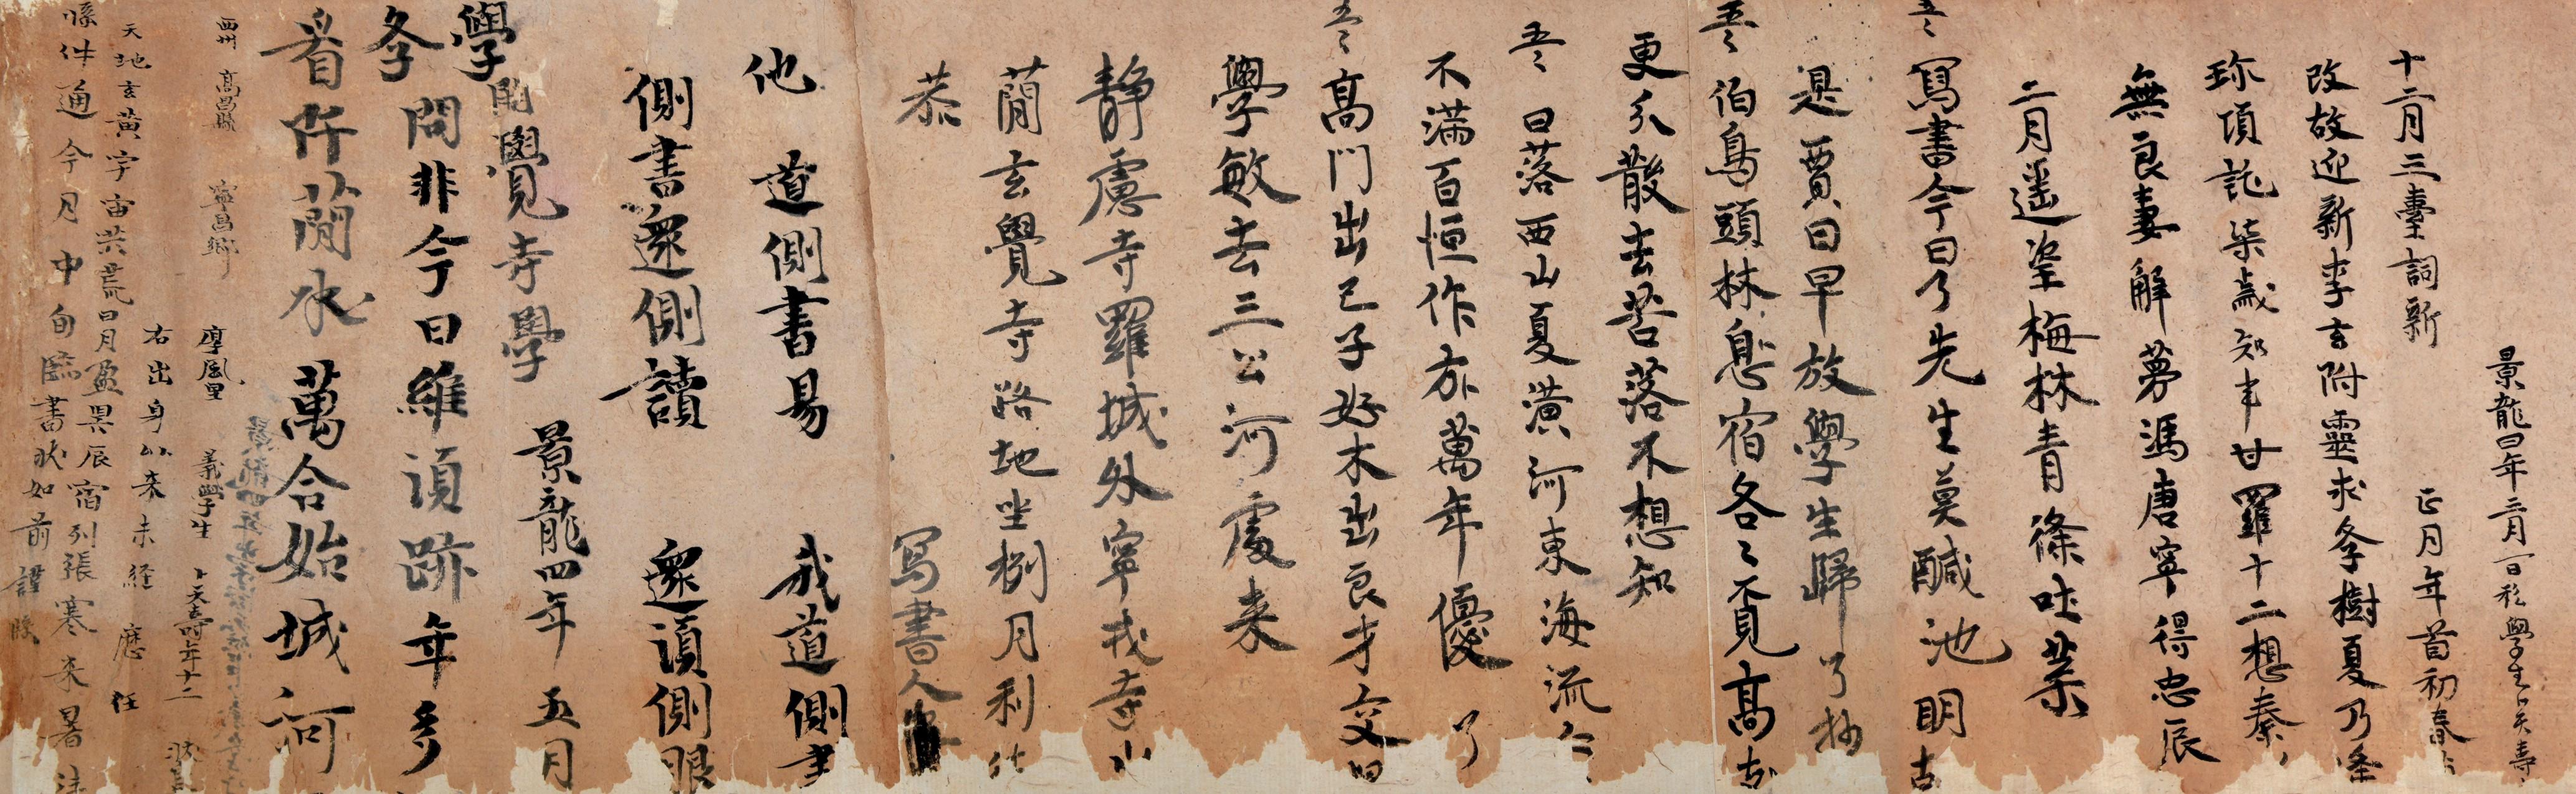 景龍四年三月一日私學生卜天壽
十二月三臺詞新 正月年首初春
改故迎新李玄附靈求學樹夏乃逢
珍項託柒歲知事甘羅十二想秦
無良妻解夢馮唐寧得忠辰
二月遙望梅林青條吐葉
五〻寫書今日了先生莫醎池明
是賈日早放學生歸 了抄
五〻伯鳥頭林息宿各〻覓高
更分散去苦落不想知
五〻日落西山夏潢河東海流
不滿百恒作万萬年優 了
五〻高門出己子好木出良才交
學敏去三公河處來
靜慮寺羅城外寧戎寺小
蕳玄覺寺路地坐捌月利
恭 寫書人
他 道側書易 我道側書
側書還側讀 還須側眼
景龍四年五月
學開覺寺學
問非今日維須跡年多
看阡蕳水萬合始城河
西州 高昌縣 寧昌鄉 厚風里 義學生 卜天壽年十二 狀
右出身以來未經應任
天地玄黃宇宙洪荒日月盈昃辰宿列張寒來暑
牒件通今月中旬臨書狀如前謹牒